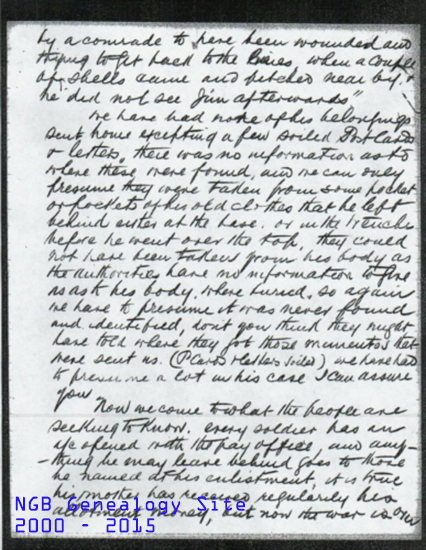 by a comrade to have been wounded and
trying to get back to the lines, when a couple
of shells came and pitched near by, &
he did not see Jim afterwards"
We have had none of his belongings
sent home excepting a few soiled Post Cards
& letters, there was no information as to
where these were found, and we can only
presume they were taken from some pocket
or pockets of his old clothes that he left
behind either at the base. or in the trenches
before he went over the top, they could
not have been taken from his body as
the authorities have no information to give
us as to his body, where buried, so again
we have to presume it was never found
and identified, don't you think they might
have told where they got those mementos that
were sent us. (P Cards & letters soiled) we have had
to presume a lot in his case I can assure
you
Now we come to what the people are
seeking to know. every soldier has an
a/c opened with the pay office, and any-
-thing he may leave behind goes to those
he named at his enlistment, it is true
his mother has received regularly his
allotment money, but now the war is over
NGB Genealogy Site
2000 - 2015